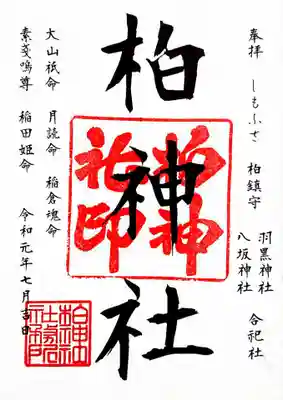 奉拝 しもふさ 柏鎮守 羽黒神社 八坂神社 合祀社
柏神社
大山祇命 月読命 稲倉魂命
素戔嗚尊 稲田姫命 令和元年七月吉日
柏神社印
柏神社社務所印